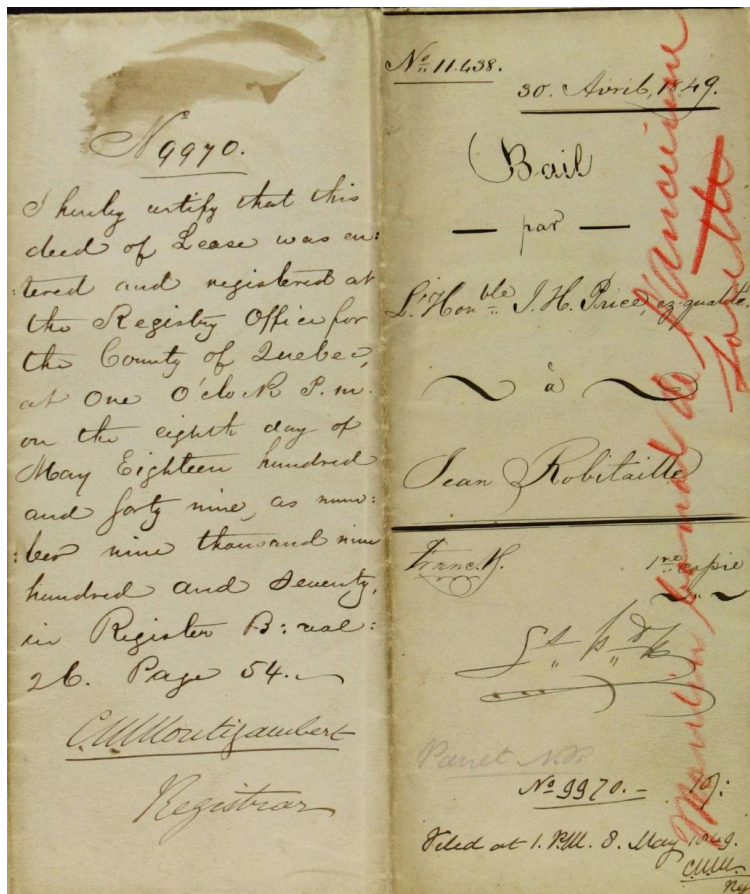 N 9970.
I hereby certify that this
deed of Lease was en:
:tered and registered at
the Registry Office for
the County of Quebec,
at One O'clock P.m.
on the eighth day of
May Eighteen hundred
and forty nine, as num:
:ber nine thousand nine
hundred and seventy,
in Register B: vol:
26. Page 54.
C.M.Montizambert
Registrar
No 11.438.
30. Avril, 1849.
Bail
— par —
L'Honble J. H. Price, ez-qualité.
à
Jean Robitaille
1re copie
Panet N.P.
No 9970.- 10/:
Filed at 1. P.M. 8. May 1849.
C.M.M.
Moulin banal de l'ancienne
Lorette